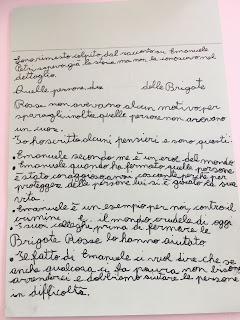 Sono rimasto colpito dal racconto su Emanuele
Petri, sapevo già la storia ma non la conoscevo nel
dettaglio.
Quelle persone, due delle Brigate
Rosse non avevano alcun motivo per
sparagli, inoltre quelle persone non avevano
un cuore.
Io ho scritto alcuni pensieri e sono questi:
• Emanuele secondo me è un eroe del mondo
• Emanuele quando ha fermato quelle persone
è stato coraggioso a non perché per
proteggere delle persone lui si è giocato la sua
vita.
• Emanuele è un esempio per noi, contro il
crimine e il mondo crudele di oggi
• I suoi colleghi prima di fermare le
Brigate Rosse lo hanno aiutato
• Se fatto di Emanuele ci vuol dire che se
anche qualcosa ci fa paura non bisogna
arrenderci e dobbiamo aiutare le persone
in difficoltà.